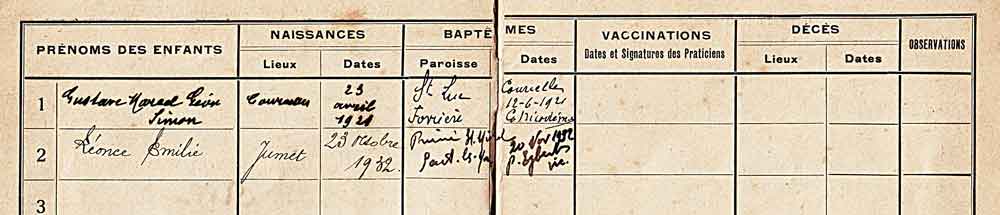 PRÉNOMS DES ENFANTS NAISSANCES BAPTÊMES VACCINATIONS DÉCÈS OBSERVATIONS
Dates et Signatures des Praticiens
Lieux Dates Paroisse Dates Lieux Dates
1 Gustave Marcel Léon Simon 23 avril 1921 St Luc Courcelles 12-6-1921
2 Léonce Emilie Jumet 23 octobre 1932. 20 Nov 1932
3